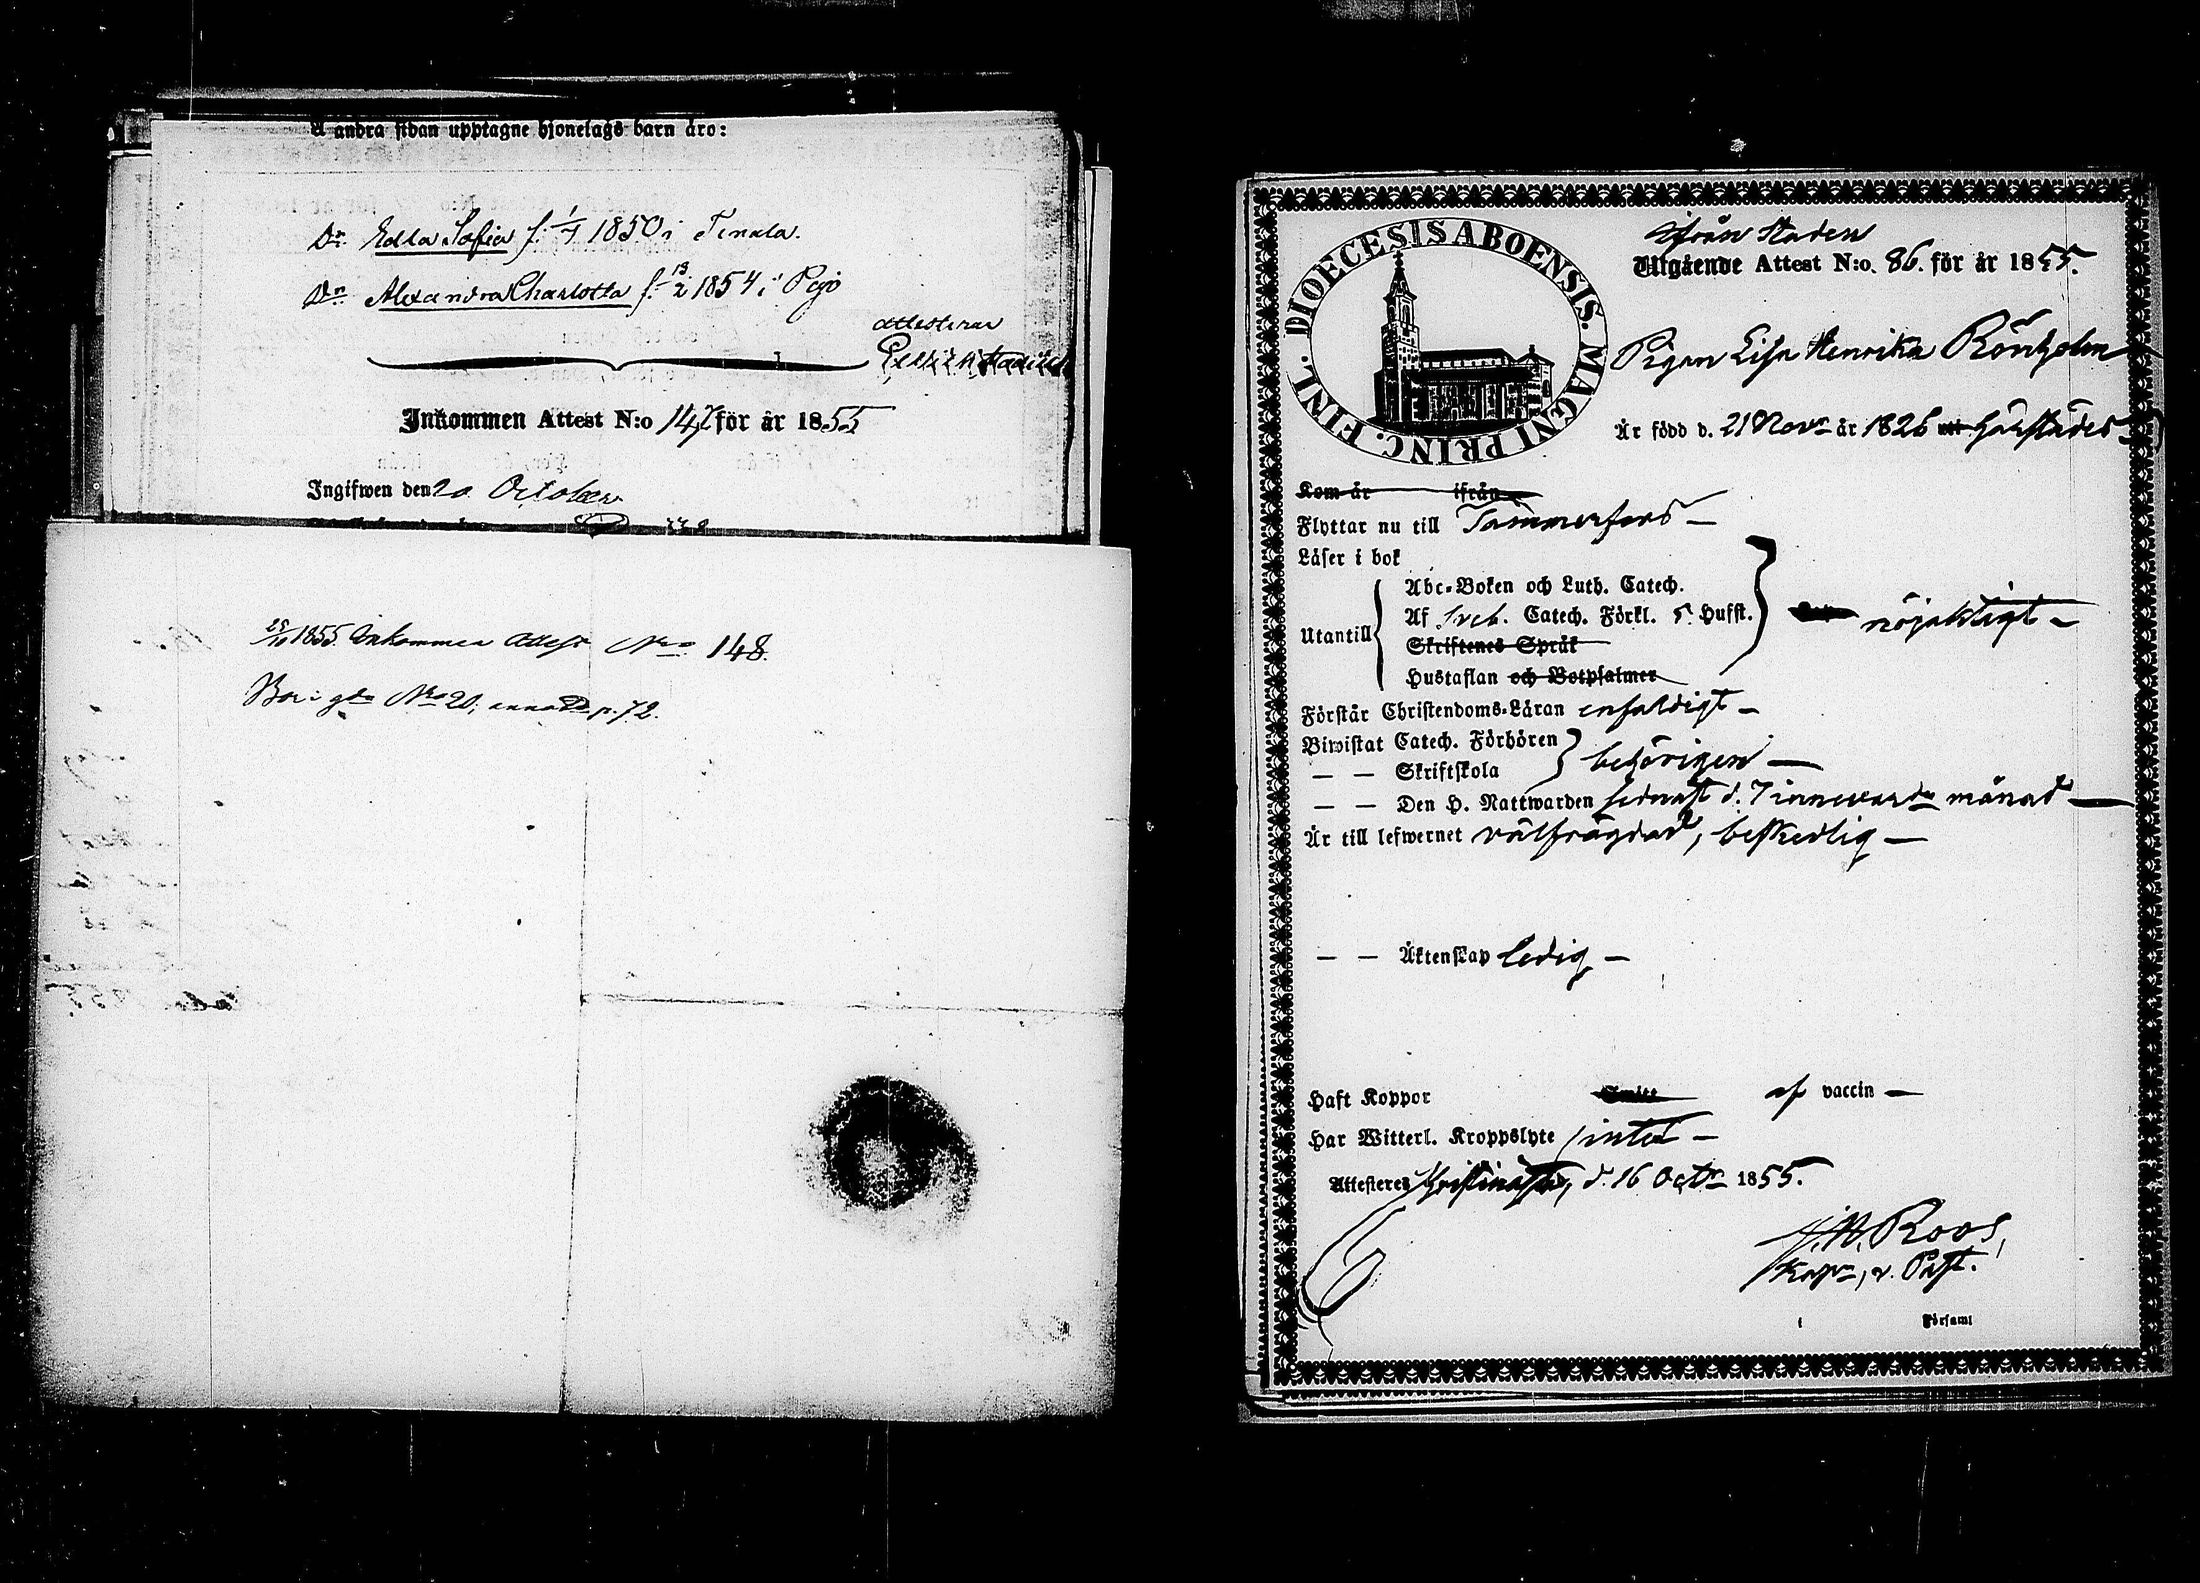 Å andra sidan upptagne hjonelags barn äro:
Dr. Edla Sofia f. 1/7 1850 i Tenala.
Dr. Alexandra Charlotta f. 13/2 1854 i Pojo
attesterar
Inkommen Attest N:o 147 för år 1855
Ingifwen den 20 October
25/10 1855 Inkommen Attest No 148.
Bor i gdn No 20, p. 72.
DIOECESIS ABOENSIS. MAGNI PRINC. FINL.
ifrån Staden
Utgående Attest N:o. 86. för år 1855.
Pigan Lisa Henrika Rönholm
Är född d. 21 Novr år 1826 härstädes
Kom år ifrån
Flyttar nu till Tammerfors —
Läser i bok
Abc-Boken och Luth. Catech.
Utantill
Af Sveb. Catech. Förkl. 5 Hufst. nöjaktigt —
Skriftenes Språk
Hustaflan och Botpsalmer
Förstår Christendoms-Läran enfaldigt —
Biwistat Catech. Förhören
— — Skriftskola behörigen —
— — Den H. Nattwarden sednast d. 7 innevarde månad —
Är till lefwernet välfrägdad, beskedlig —
— — Äktenskap ledig —
Haft Koppor Smitt af vaccin —
Har Witterl. Kroppslyte intet —
Attesteres Christinestad, d. 16 Octr 1855.
J. M. Roos,
Kapn, v. Past.
i Församl